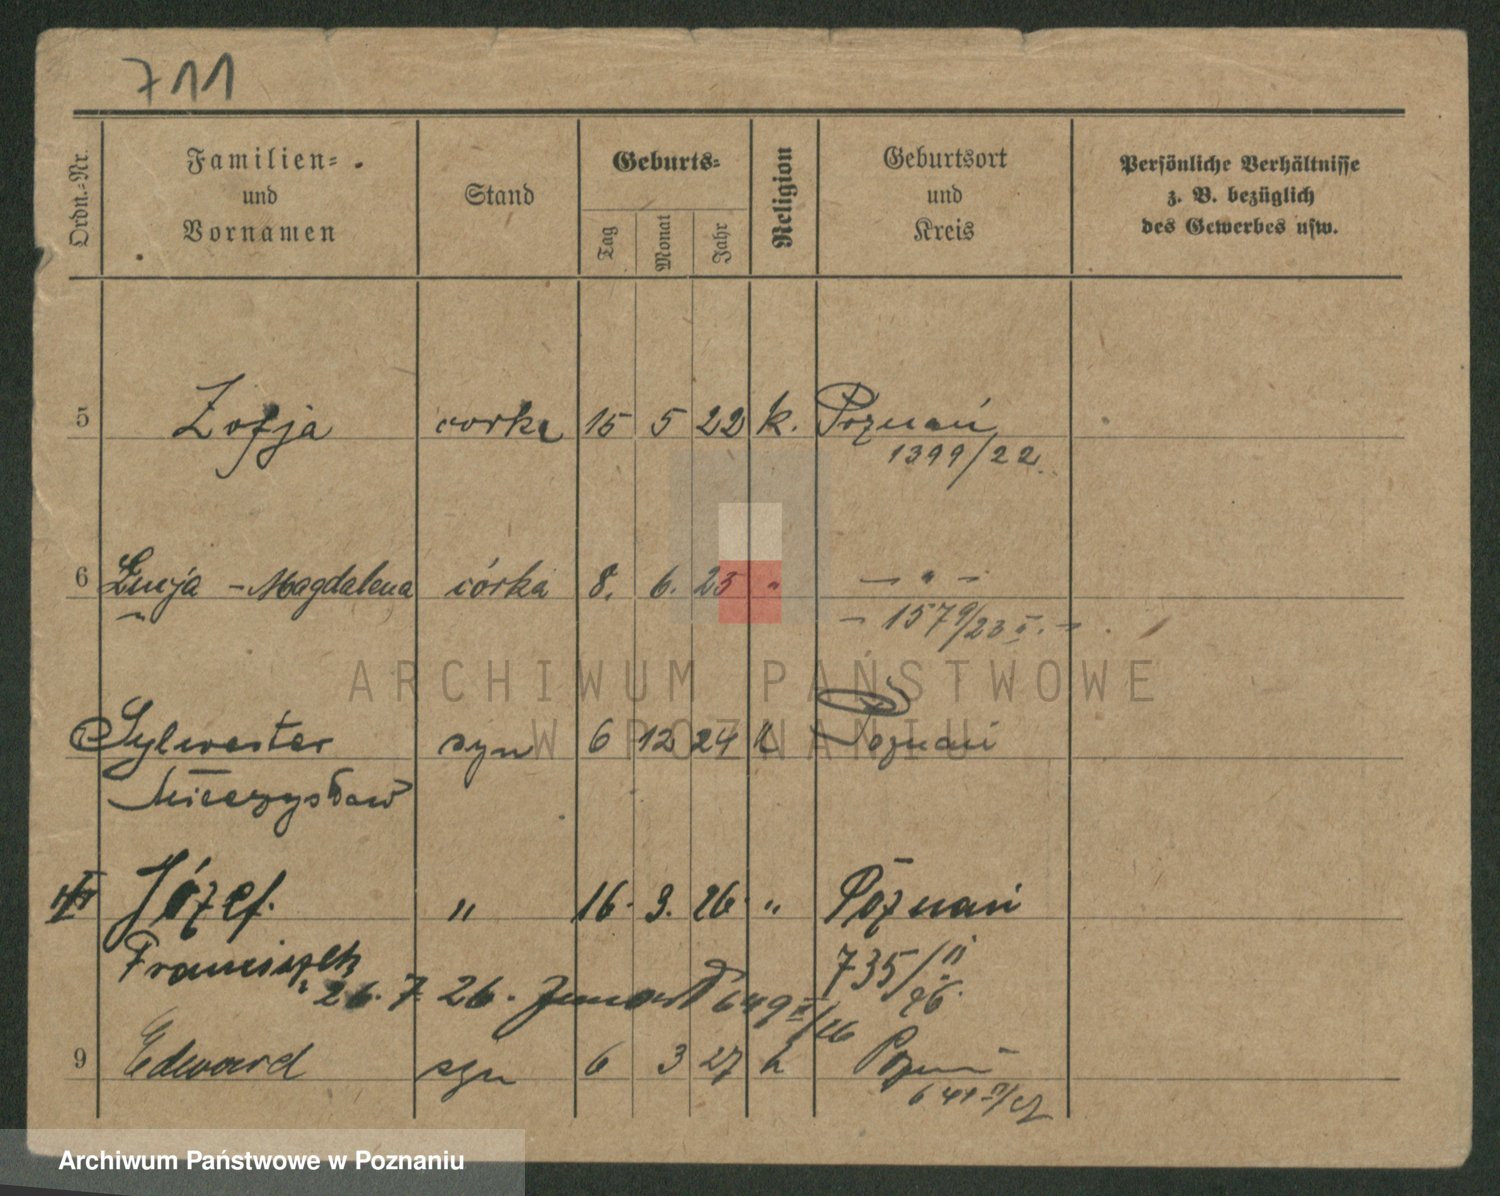 711
Ordn.-Nr.
Familien-
und
Vornamen
Stand
Geburts-
Tag
Monat
Jahr
Religion
Geburtsort
und
Kreis
Persönliche Verhältnisse
z. B. bezüglich
des Gewerbes usw.
5 Zofja corka 15 5 22 k. Poznań
1399/22
6 Łucja - Magdalena córka 8. 6. 23 " — " —
1579/23
Sylwester syn 6 12 24 k Poznań
Mieczysław
Józef " 16. 3. 26. " Poznań
Franciszek 735/II
26.
26. 7. 26. Zmarł 649 /26
9 Edward syn 6 3 27 k Poznań
ARCHIWUM PAŃSTWOWE
W POZNANIU
Archiwum Państwowe w Poznaniu